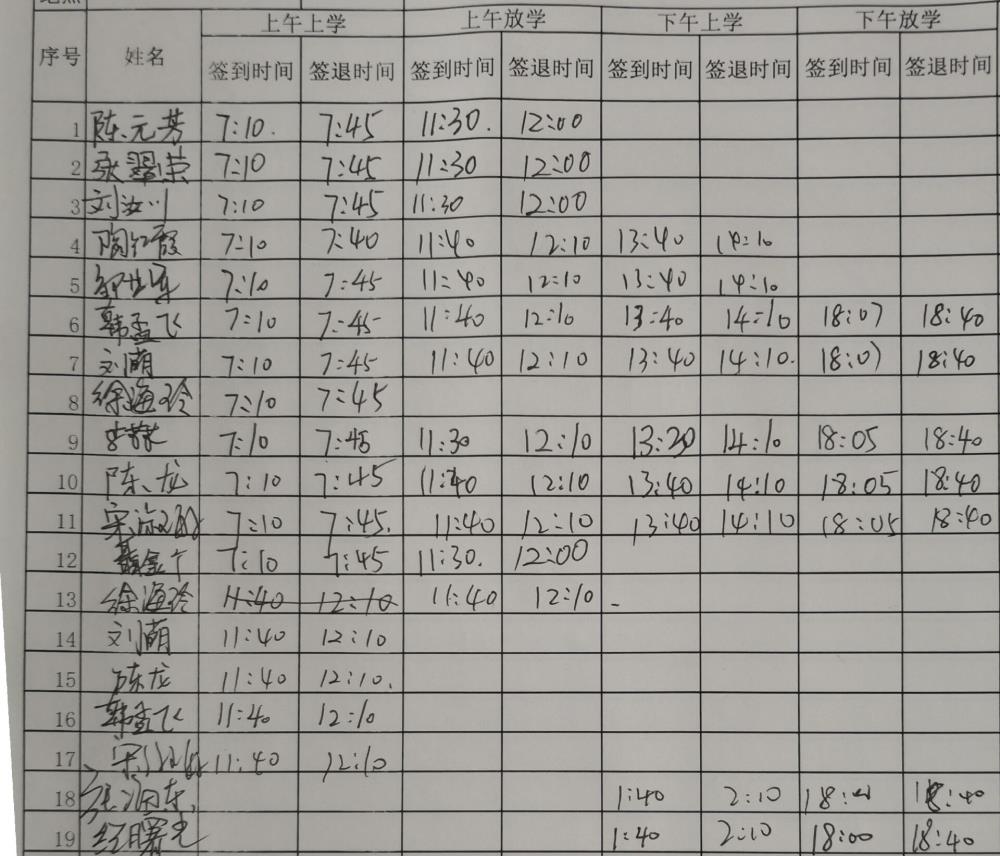 上午上学 上午放学 下午上学 下午放学
序号 姓名 签到时间 签退时间 签到时间 签退时间 签到时间 签退时间 签到时间 签退时间
1 陈元芳 7:10. 7:45 11:30. 12:00
2 张翠荣 7:10 7:45 11:30 12:00
3 刘汝川 7:10 7:45 11:30 12:00
4 陶红霞 7:10 7:40 11:40 12:10 13:40 14:10
5 7:10 7:45 11:40 12:10 13:40 14:10
6 韩孟飞 7:10 7:45 11:40 12:10 13:40 14:10 18:07 18:40
7 刘萌 7:10 7:45 11:40 12:10 13:40 14:10. 18:07 18:40
8 徐海玲 7:10 7:45
9 7:10 7:45 11:30 12:10 13:20 14:10 18:05 18:40
10 陈龙 7:10 7:45 11:40 12:10 13:40 14:10 18:05 18:40
11 宋淑敏 7:10 7:45. 11:40 12:10 13:40 14:10 18:05 18:40
12 7:10 7:45 11:30. 12:00
13 徐海玲 11:40 12:10 11:40 12:10
14 刘萌 11:40 12:10
15 陈龙 11:40 12:10.
16 韩孟飞 11:40 12:10
17 11:40 12:10
18 1:40 2:10 18:40
19 经曙光 1:40 2:10 18:00 18:40